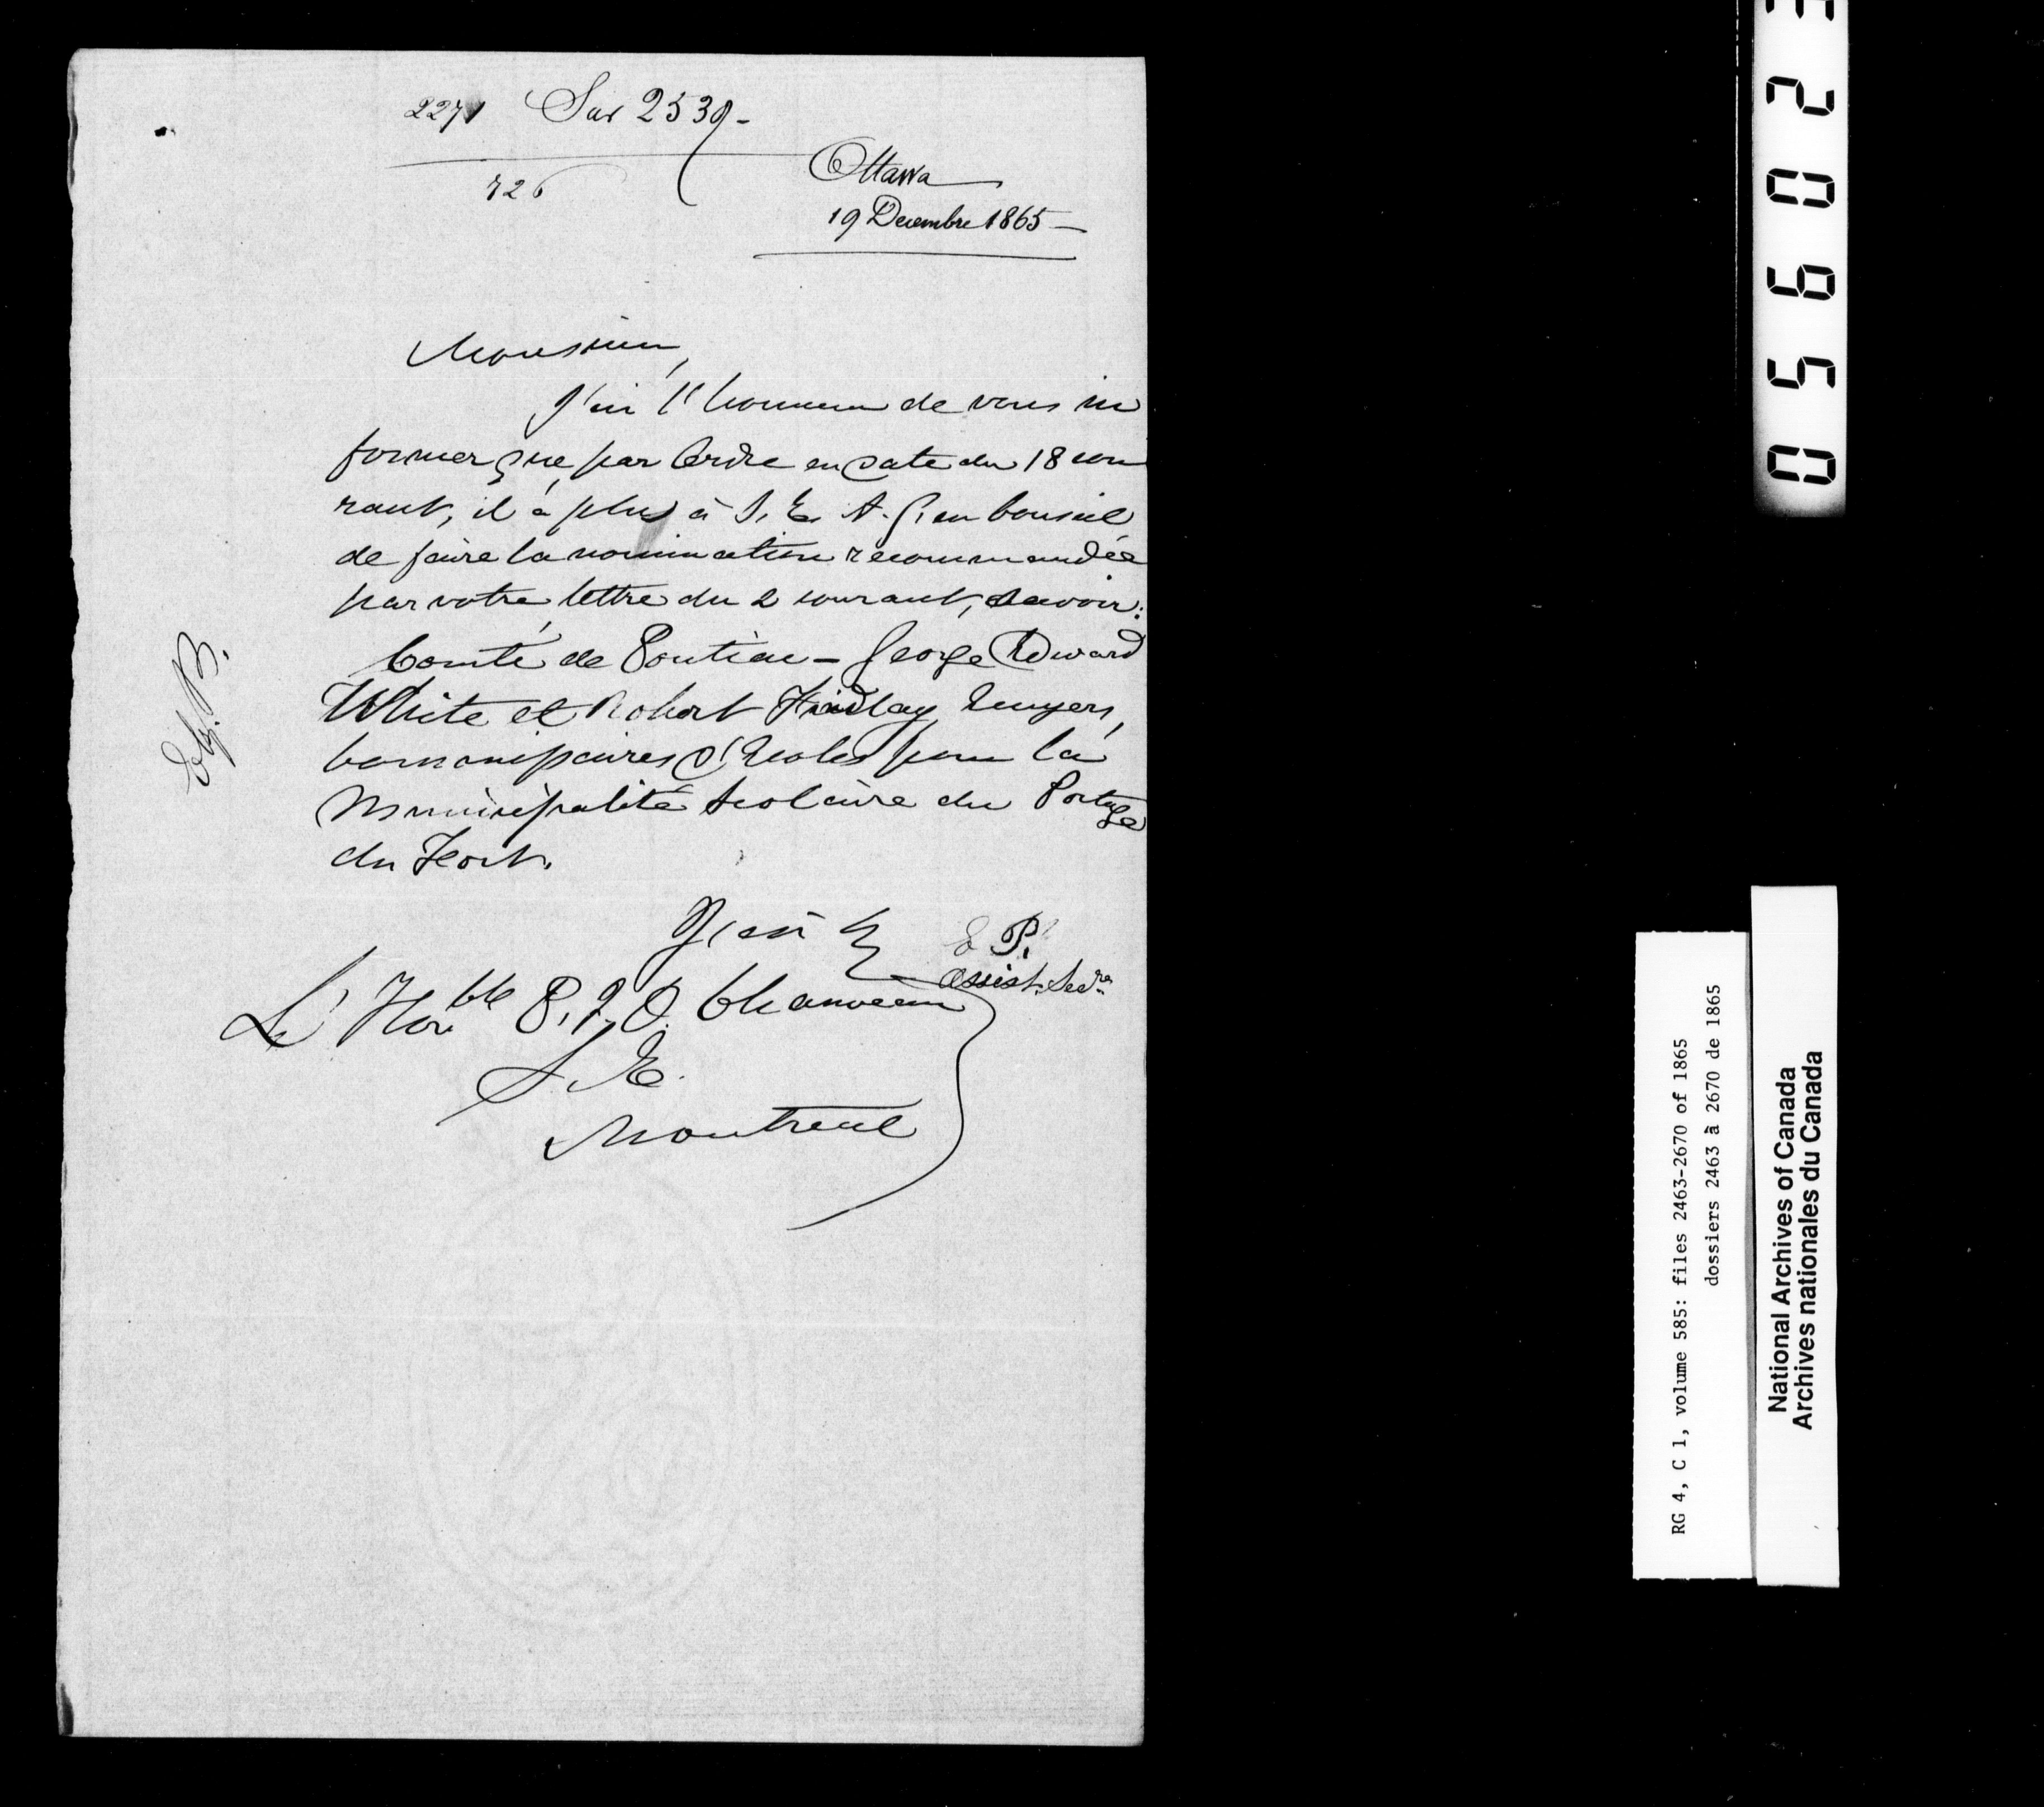 2271 Sur 2539-
726
Ottawa
19 Decembre 1865-
Monsieur,
J'ai l'honneur de vous in
former que, par Ordre en date du 18 cou
rant, il a plu à S. E. A. G. en Conseil
de faire la nomination recommandée
par votre lettre du 2 courant, savoir:
Comté de Pontiac - George Edward
White et Robert Findlay, Ecuyers,
Commissaires d'Ecoles pour la
Municipalité Scolaire du Portage
du Fort.
J'ai &
E P.
Assist. Secre
L'Honble P. J. O. Chauveau
S. E.
Montreal
05602
RG 4, C 1, volume 585: files 2463-2670 of 1865
dossiers 2463 à 2670 de 1865
National Archives of Canada
Archives nationales du Canada